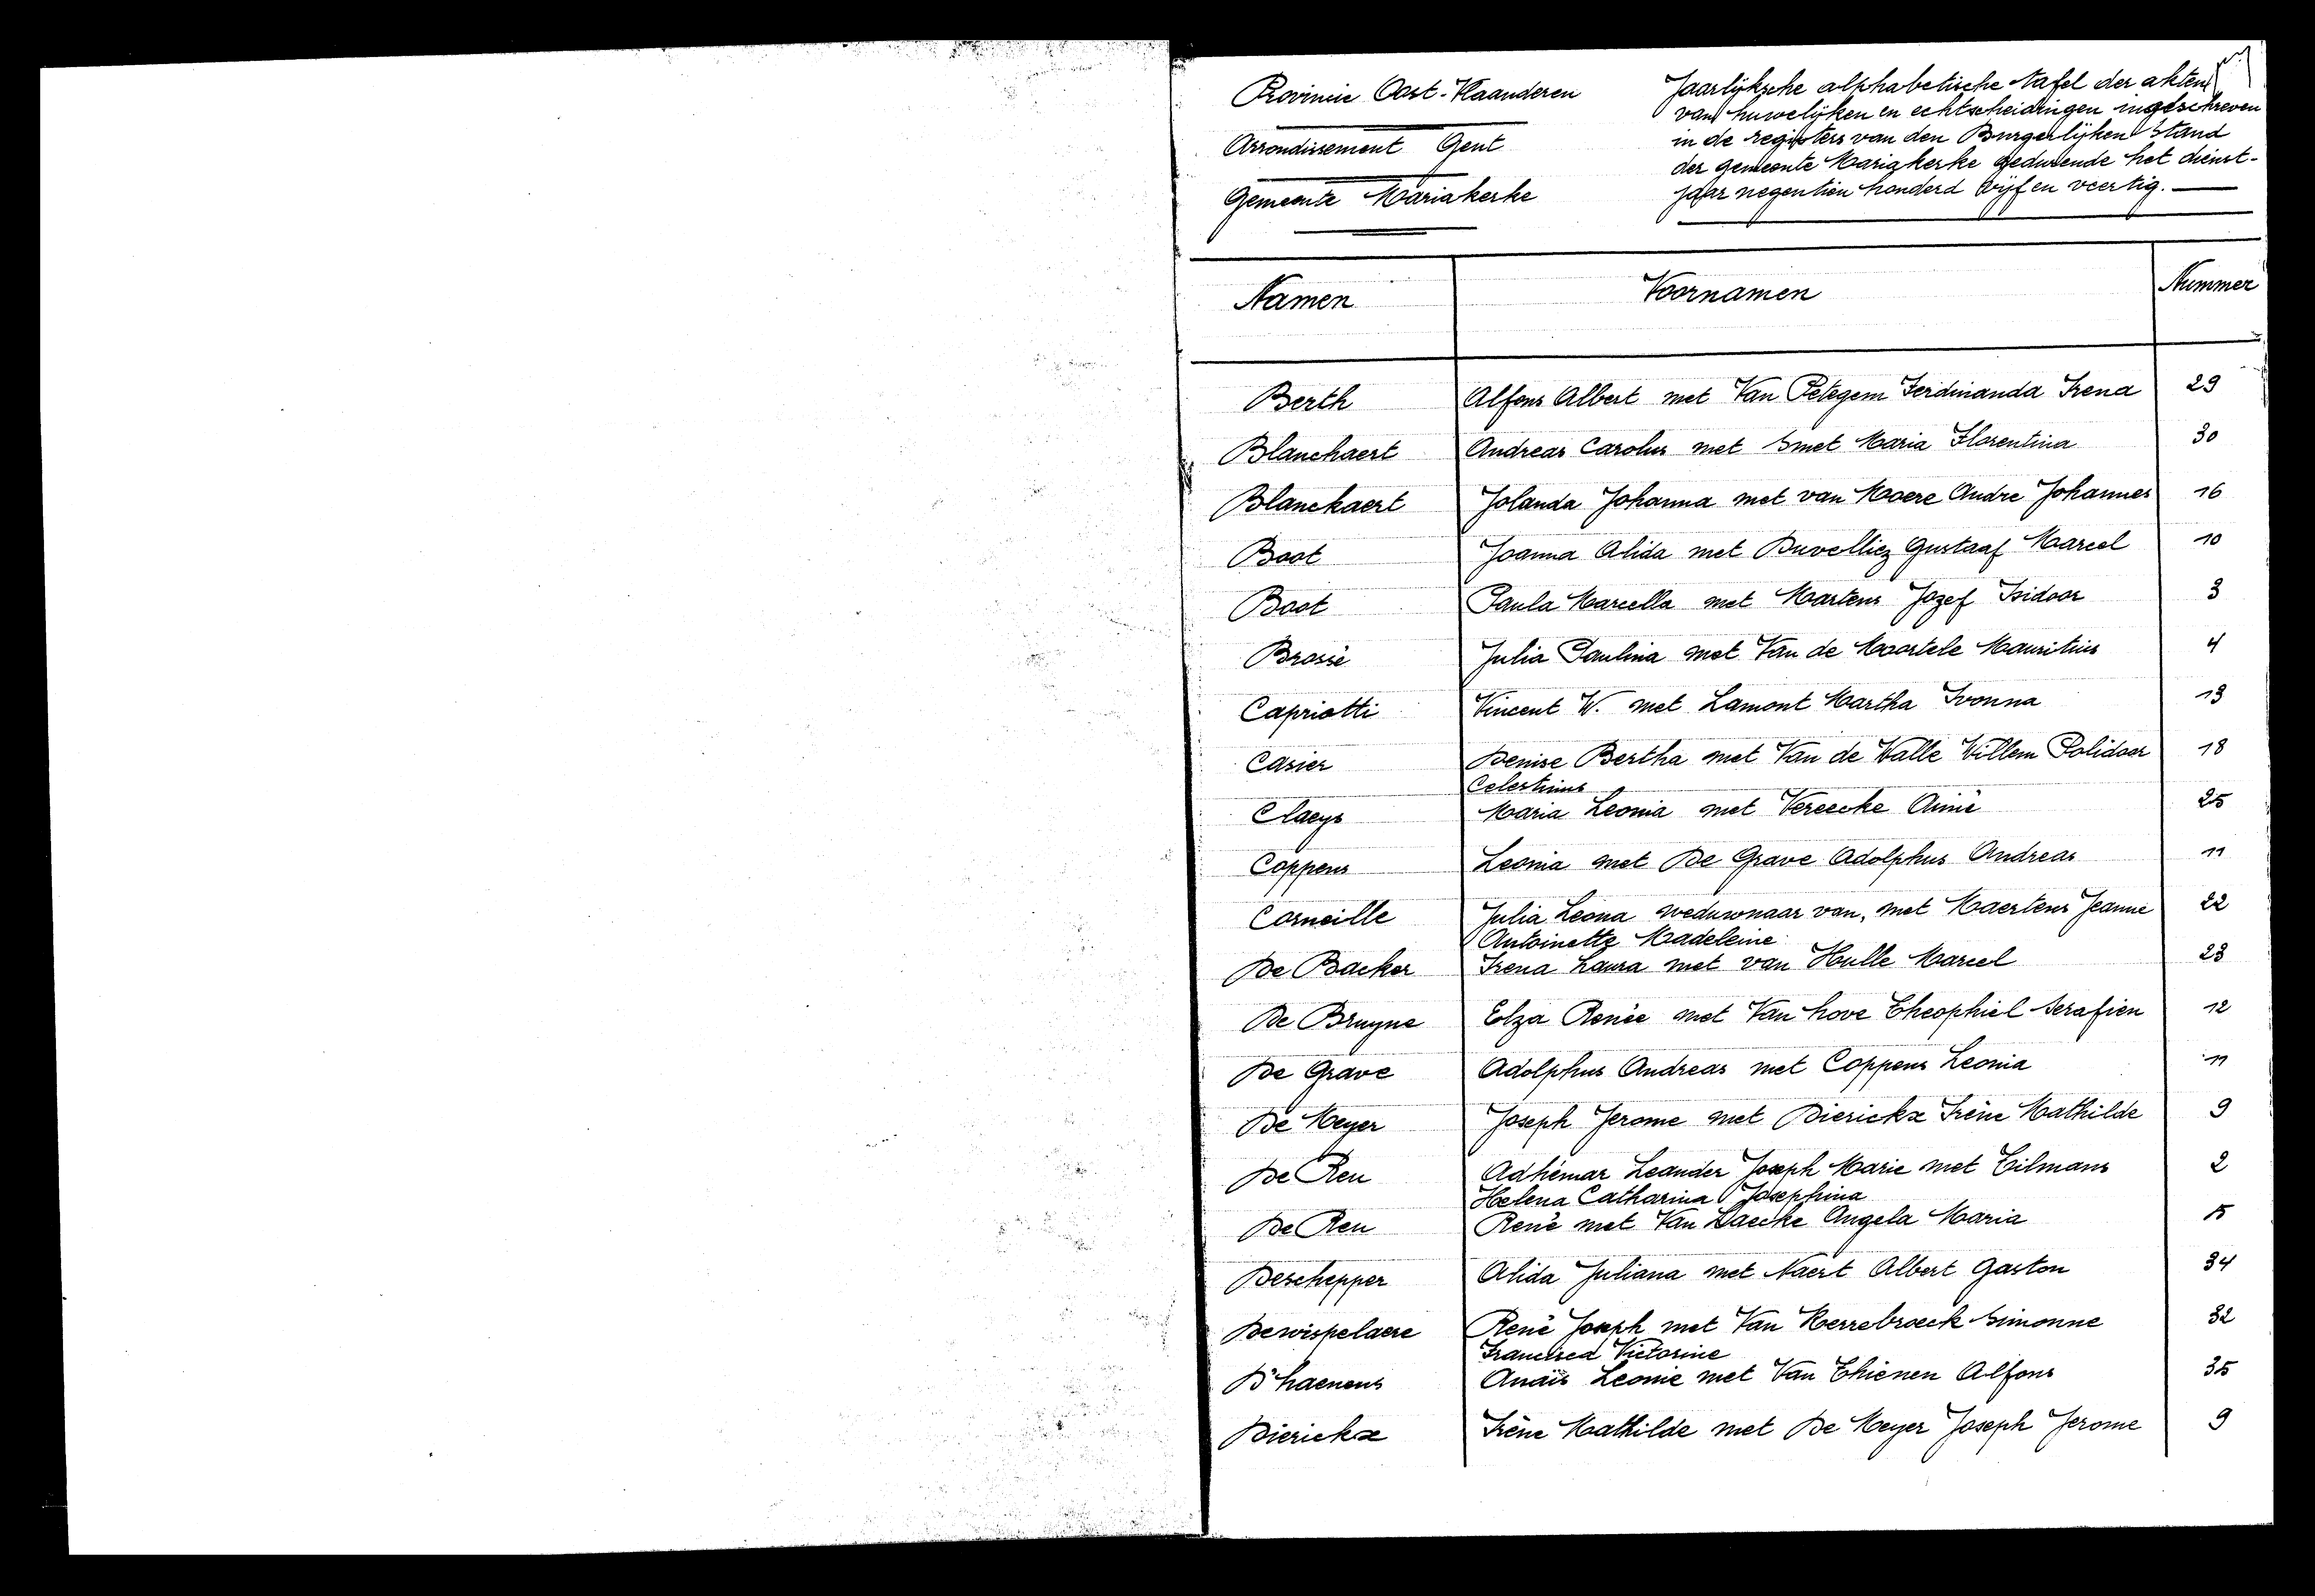 Provincie Oost-Vlaanderen
Arrondissement Gent
Gemeente Mariakerke
Jaarlijksche alphabetische tafel der akten
van huwelijken en echtscheidingen ingeschreven
in de registers van den Burgerlijken Stand
der gemeente Mariakerke gedurende het dienst-
jaar negentien honderd vijf en veertig.
Namen Voornamen Nummer
Berth Alfons Albert met Van Petegem Ferdinanda Irena 29
Blanckaert Andreas Carolus met Smet Maria Florentina 30
Blanckaert Jolanda Johanna met van Moere Andre Johannes 16
Boot Joanna Alida met Duvelliez Gustaaf Marcel 10
Boot Paula Marcella met Martens Jozef Isidoor 3
Brossé Julia Paulina met Van de Moortele Mauritius 4
Capriotti Vincent W. met Lamont Martha Ivonna 13
Casier Denise Bertha met Van de Walle Willem Polidoor 18
Celestinus
Claeys Maria Leonia met Vereecke Aimé 25
Coppens Leonia met De Grave Adolphus Andreas 11
Corneille Julia Leona weduwnaar van, met Maertens Jeanne 22
Antoinette Madeleine
De Backer Irena Laura met van Hulle Marcel 23
De Bruyne Elza Renée met Van hove Theophiel Serafien 12
De Grave Adolphus Andreas met Coppens Leonia 11
De Meyer Joseph Jerome met Dierickx Irène Mathilde 9
De Reu Adhémar Leander Joseph Marie met Tilmans 2
Helena Catharina Josephina
De Reu René met Van Daecke Angela Maria 5
Deschepper Alida Juliana met Naert Albert Gaston 34
Dewispelaere René Joseph met Van Herrebroeck Simonne 32
Francisca Victorine
D'haenens Anaïs Leonie met Van Thienen Alfons 35
Dierickx Irène Mathilde met De Meyer Joseph Jerome 9